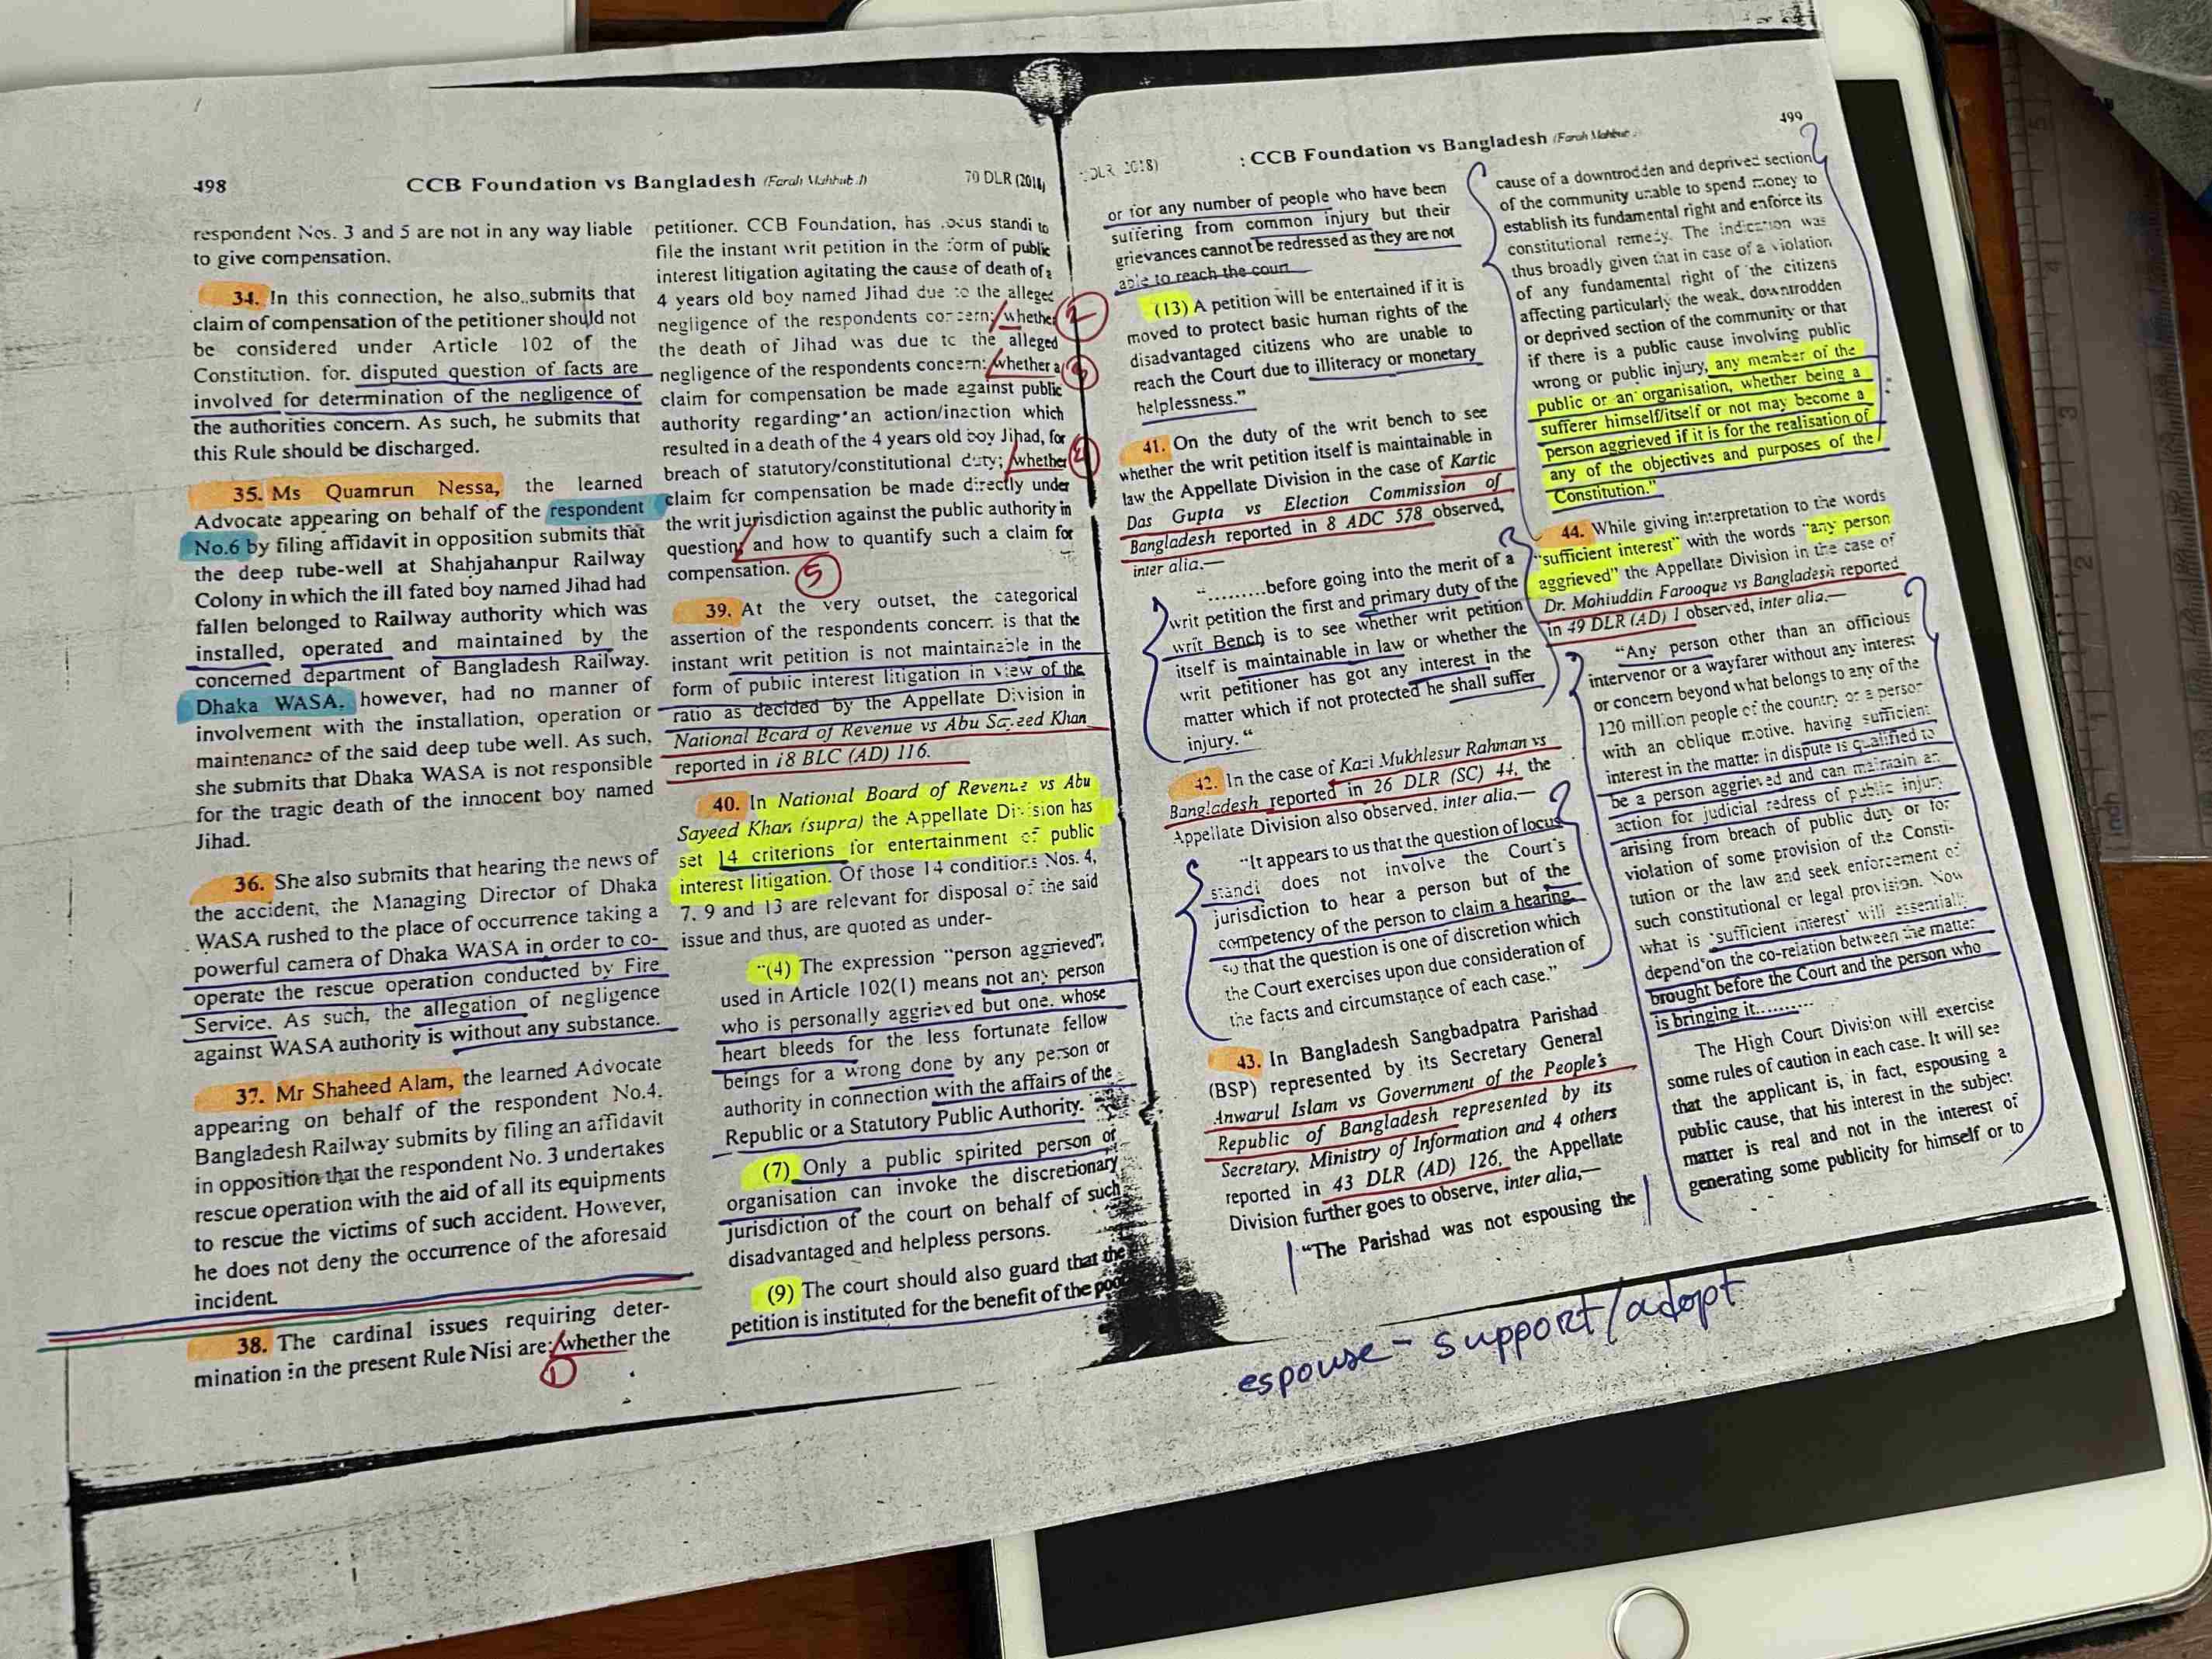 498
CCB Foundation vs Bangladesh (Farah Mahbub J)
70 DLR (2018)
respondent Nos. 3 and 5 are not in any way liable
to give compensation.
34. In this connection, he also submits that
claim of compensation of the petitioner should not
be considered under Article 102 of the
Constitution. for. disputed question of facts are
involved for determination of the negligence of
the authorities concern. As such, he submits that
this Rule should be discharged.
35. Ms Quamrun Nessa, the learned
Advocate appearing on behalf of the respondent
No.6 by filing affidavit in opposition submits that
the deep tube-well at Shahjahanpur Railway
Colony in which the ill fated boy named Jihad had
fallen belonged to Railway authority which was
installed, operated and maintained by the
concerned department of Bangladesh Railway.
Dhaka WASA, however, had no manner of
involvement with the installation, operation or
maintenance of the said deep tube well. As such,
she submits that Dhaka WASA is not responsible
for the tragic death of the innocent boy named
Jihad.
36. She also submits that hearing the news of
the accident, the Managing Director of Dhaka
WASA rushed to the place of occurrence taking a
powerful camera of Dhaka WASA in order to co-
operate the rescue operation conducted by Fire
Service. As such, the allegation of negligence
against WASA authority is without any substance.
37. Mr Shaheed Alam, the learned Advocate
appearing on behalf of the respondent No.4,
Bangladesh Railway submits by filing an affidavit
in opposition that the respondent No. 3 undertakes
rescue operation with the aid of all its equipments
to rescue the victims of such accident. However,
he does not deny the occurrence of the aforesaid
incident.
38. The cardinal issues requiring deter-
mination in the present Rule Nisi are: whether the
1
petitioner. CCB Foundation, has locus standi to
file the instant writ petition in the form of public
interest litigation agitating the cause of death of a
4 years old boy named Jihad due to the alleged
negligence of the respondents concern; whether
2
the death of Jihad was due to the alleged
negligence of the respondents concern; whether a
3
claim for compensation be made against public
authority regarding an action/inaction which
resulted in a death of the 4 years old boy Jihad, for
breach of statutory/constitutional duty; whether
4
claim for compensation be made directly under
the writ jurisdiction against the public authority in
question; and how to quantify such a claim for
compensation.
5
39. At the very outset, the categorical
assertion of the respondents concern is that the
instant writ petition is not maintainable in the
form of public interest litigation in view of the
ratio as decided by the Appellate Division in
National Board of Revenue vs Abu Sayeed Khan
reported in 18 BLC (AD) 116.
40. In National Board of Revenue vs Abu
Sayeed Khan (supra) the Appellate Division has
set 14 criterions for entertainment of public
interest litigation. Of those 14 conditions Nos. 4,
7, 9 and 13 are relevant for disposal of the said
issue and thus, are quoted as under-
"(4) The expression "person aggrieved",
used in Article 102(1) means not any person
who is personally aggrieved but one. whose
heart bleeds for the less fortunate fellow
beings for a wrong done by any person or
authority in connection with the affairs of the
Republic or a Statutory Public Authority.
(7) Only a public spirited person or
organisation can invoke the discretionary
jurisdiction of the court on behalf of such
disadvantaged and helpless persons.
(9) The court should also guard that the
petition is instituted for the benefit of the poor
DLR 2018)
: CCB Foundation vs Bangladesh (Farah Mahbub
499
or for any number of people who have been
suffering from common injury but their
grievances cannot be redressed as they are not
able to reach the court
(13) A petition will be entertained if it is
moved to protect basic human rights of the
disadvantaged citizens who are unable to
reach the Court due to illiteracy or monetary
helplessness."
41. On the duty of the writ bench to see
whether the writ petition itself is maintainable in
law the Appellate Division in the case of Kartic
Das Gupta vs Election Commission of
Bangladesh reported in 8 ADC 578 observed,
inter alia.—
".........before going into the merit of a
writ petition the first and primary duty of the
writ Bench is to see whether writ petition
itself is maintainable in law or whether the
writ petitioner has got any interest in the
matter which if not protected he shall suffer
injury."
42. In the case of Kazi Mukhlesur Rahman vs
Bangladesh reported in 26 DLR (SC) 44, the
Appellate Division also observed. inter alia.—
"It appears to us that the question of locus
standi does not involve the Court's
jurisdiction to hear a person but of the
competency of the person to claim a hearing
so that the question is one of discretion which
the Court exercises upon due consideration of
the facts and circumstance of each case."
43. In Bangladesh Sangbadpatra Parishad
(BSP) represented by its Secretary General
Anwarul Islam vs Government of the People's
Republic of Bangladesh represented by its
Secretary, Ministry of Information and 4 others
reported in 43 DLR (AD) 126, the Appellate
Division further goes to observe, inter alia,—
"The Parishad was not espousing the
cause of a downtrodden and deprived section
of the community unable to spend money to
establish its fundamental right and enforce its
constitutional remedy. The indication was
thus broadly given that in case of a violation
of any fundamental right of the citizens
affecting particularly the weak, downtrodden
or deprived section of the community or that
if there is a public cause involving public
wrong or public injury, any member of the
public or an organisation, whether being a
sufferer himself/itself or not may become a
person aggrieved if it is for the realisation of
any of the objectives and purposes of the
Constitution."
44. While giving interpretation to the words
"sufficient interest" with the words "any person
aggrieved" the Appellate Division in the case of
Dr. Mohiuddin Farooque vs Bangladesh reported
in 49 DLR (AD) 1 observed, inter alia.—
"Any person other than an officious
intervenor or a wayfarer without any interest
or concern beyond what belongs to any of the
120 million people of the country or a person
with an oblique motive, having sufficient
interest in the matter in dispute is qualified to
be a person aggrieved and can maintain an
action for judicial redress of public injury
arising from breach of public duty or for
violation of some provision of the Consti-
tution or the law and seek enforcement of
such constitutional or legal provision. Now
what is 'sufficient interest' will essentially
depend on the co-relation between the matter
brought before the Court and the person who
is bringing it.........
The High Court Division will exercise
some rules of caution in each case. It will see
that the applicant is, in fact, espousing a
public cause, that his interest in the subject
matter is real and not in the interest of
generating some publicity for himself or to
espouse - support/adopt